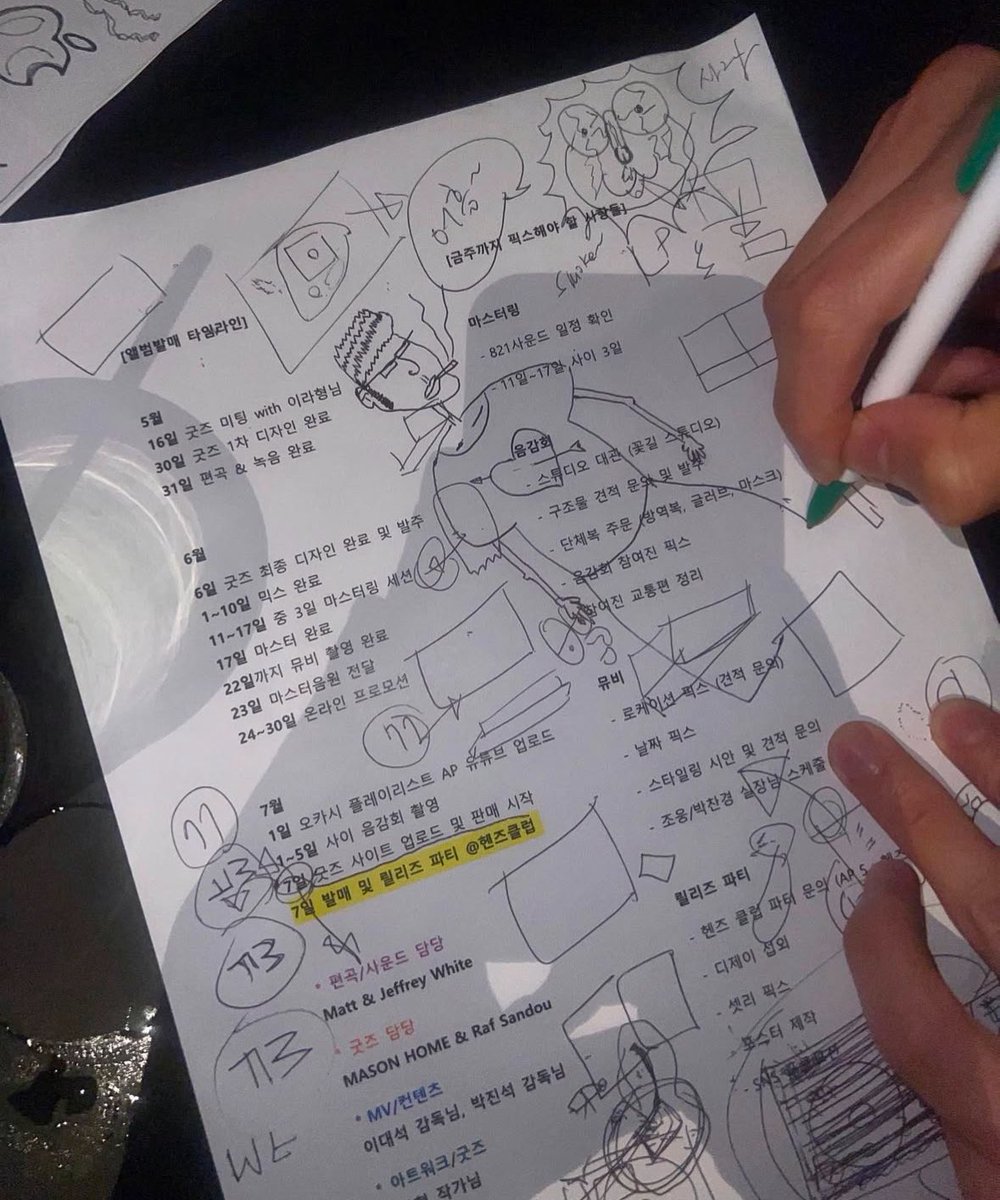 [앨범발매 타임라인]
5월
16일 굿즈 미팅 with 이라형님
30일 굿즈 1차 디자인 완료
31일 편곡 & 녹음 완료
6월
6일 굿즈 최종 디자인 완료 및 발주
1~10일 믹스 완료
11~17일 중 3일 마스터링 세션
17일 마스터 완료
22일까지 뮤비 촬영 완료
23일 마스터음원 전달
24~30일 온라인 프로모션
7월
1일 오카시 플레이리스트 AP 유튜브 업로드
1~5일 사이 음감회 촬영
7일 굿즈 사이트 업로드 및 판매 시작
7일 발매 및 릴리즈 파티 @헨즈클럽
* 편곡/사운드 담당
Matt & Jeffrey White
* 굿즈 담당
MASON HOME & Raf Sandou
* MV/컨텐츠
이대석 감독님, 박진석 감독님
* 아트워크/굿즈
작가님
[금주까지 픽스해야 할 사항들]
마스터링
- 821사운드 일정 확인
- 11일~17일 사이 3일
음감회
- 스튜디오 대관 (꽃길 스튜디오)
- 구조물 견적 문의 및 발주
- 단체복 주문 (방역복, 글러브, 마스크)
- 음감회 참여진 픽스
- 참여진 교통편 정리
뮤비
- 로케이션 픽스 (견적 문의)
- 날짜 픽스
- 스타일링 시안 및 견적 문의
- 조웅/박찬경 실장님 스케줄
릴리즈 파티
- 헨즈 클럽 파티 문의 (AP
- 디제이 섭외
- 셋리 픽스
- 포스터 제작
Smoke